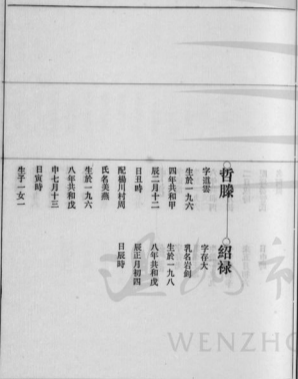 哲滕
字道雲
生於一九六
四年共和甲
辰二月十二
日丑時
配楊川村周
氏名美燕
生於一九六
八年共和戊
申七月十三
日寅時
生子一女一
紹禄
字存大
乳名岩鈎
生於一九八
八年共和戊
辰正月初四
日辰時
WENZHO